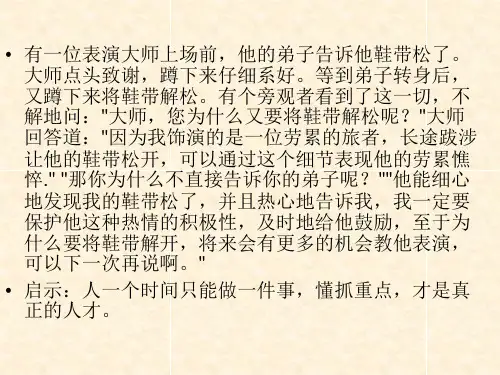 • 有一位表演大师上场前，他的弟子告诉他鞋带松了。
大师点头致谢，蹲下来仔细系好。等到弟子转身后，
又蹲下来将鞋带解松。有个旁观者看到了这一切，不
解地问："大师，您为什么又要将鞋带解松呢？"大师
回答道："因为我饰演的是一位劳累的旅者，长途跋涉
让他的鞋带松开，可以通过这个细节表现他的劳累憔
悴." "那你为什么不直接告诉你的弟子呢？""他能细心
地发现我的鞋带松了，并且热心地告诉我，我一定要
保护他这种热情的积极性，及时地给他鼓励，至于为
什么要将鞋带解开，将来会有更多的机会教他表演，
可以下一次再说啊。"
• 启示：人一个时间只能做一件事，懂抓重点，才是真
正的人才。